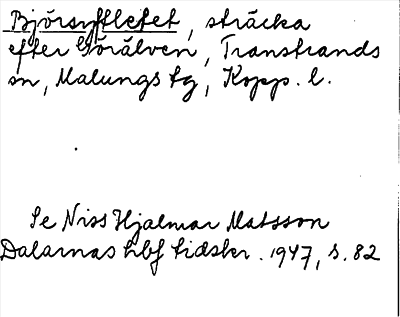 Björsyftletet, sträcka
efter Görälven, Transtrands
sn, Malungs tg, Kopp. l.
Se Niss Hjalmar Matsson
Dalarnas hbf tidskr. 1947, s. 82